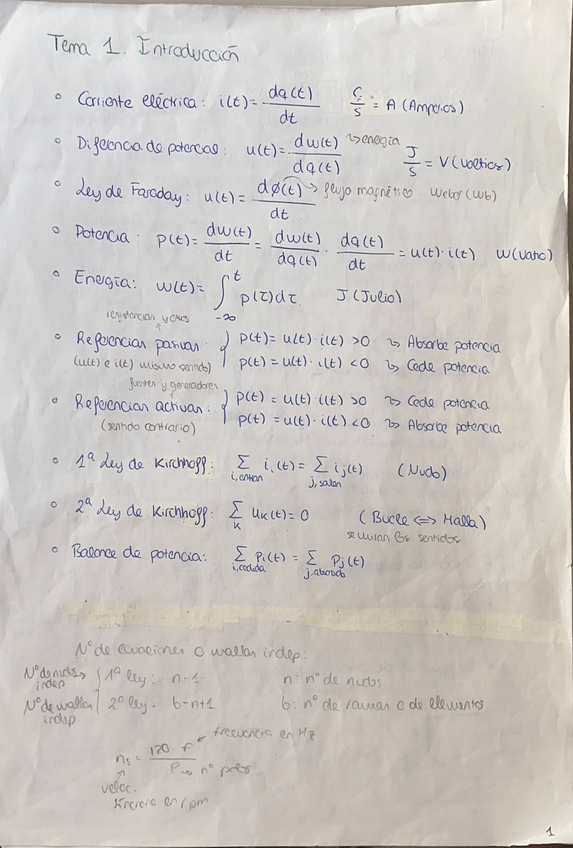 Tema 1. Introducción
° Corriente eléctrica: i(t) = dq(t)/dt   C/s = A (Amperios)
° Diferencia de potencial: u(t) = dw(t)/dq(t) → energía   J/s = V (voltios)
° Ley de Faraday: u(t) = dφ(t)/dt → flujo magnético Weber (Wb)
° Potencia: p(t) = dw(t)/dt = dw(t)/dq(t) · dq(t)/dt = u(t)·i(t)   W (Vatio)
° Energía: w(t) = ∫_{-∞}^{t} p(τ)dτ   J (Julio)
resistencias y
° Referencias pasivas { p(t) = u(t)·i(t) > 0 → Absorbe potencia
(u(t) e i(t) mismo sentido) { p(t) = u(t)·i(t) < 0 → Cede potencia
fuentes y generadores
° Referencias activas: { p(t) = u(t)·i(t) > 0 → Cede potencia
(sentido contrario) { p(t) = u(t)·i(t) < 0 → Absorbe potencia
° 1ª Ley de Kirchhoff: Σ_{i,entran} i_i(t) = Σ_{j,salen} i_j(t)   (Nudo)
° 2ª Ley de Kirchhoff: Σ_K u_K(t) = 0   (Bucle ⟺ Malla)
se miran los sentidos
° Balance de potencia: Σ_{i,cedida} P_i(t) = Σ_{j,absorbida} P_j(t)
Nº de ecuaciones o mallas indep:
Nº de nudos indep → { 1ª ley: n-1   n: nº de nudos
Nº de mallas indep { 2ª ley: b-n+1   b: nº de ramas o de elementos
n_s = 120·f/P   ← frecuencia en Hz
→ nº polos
veloc.
síncrona en rpm
1